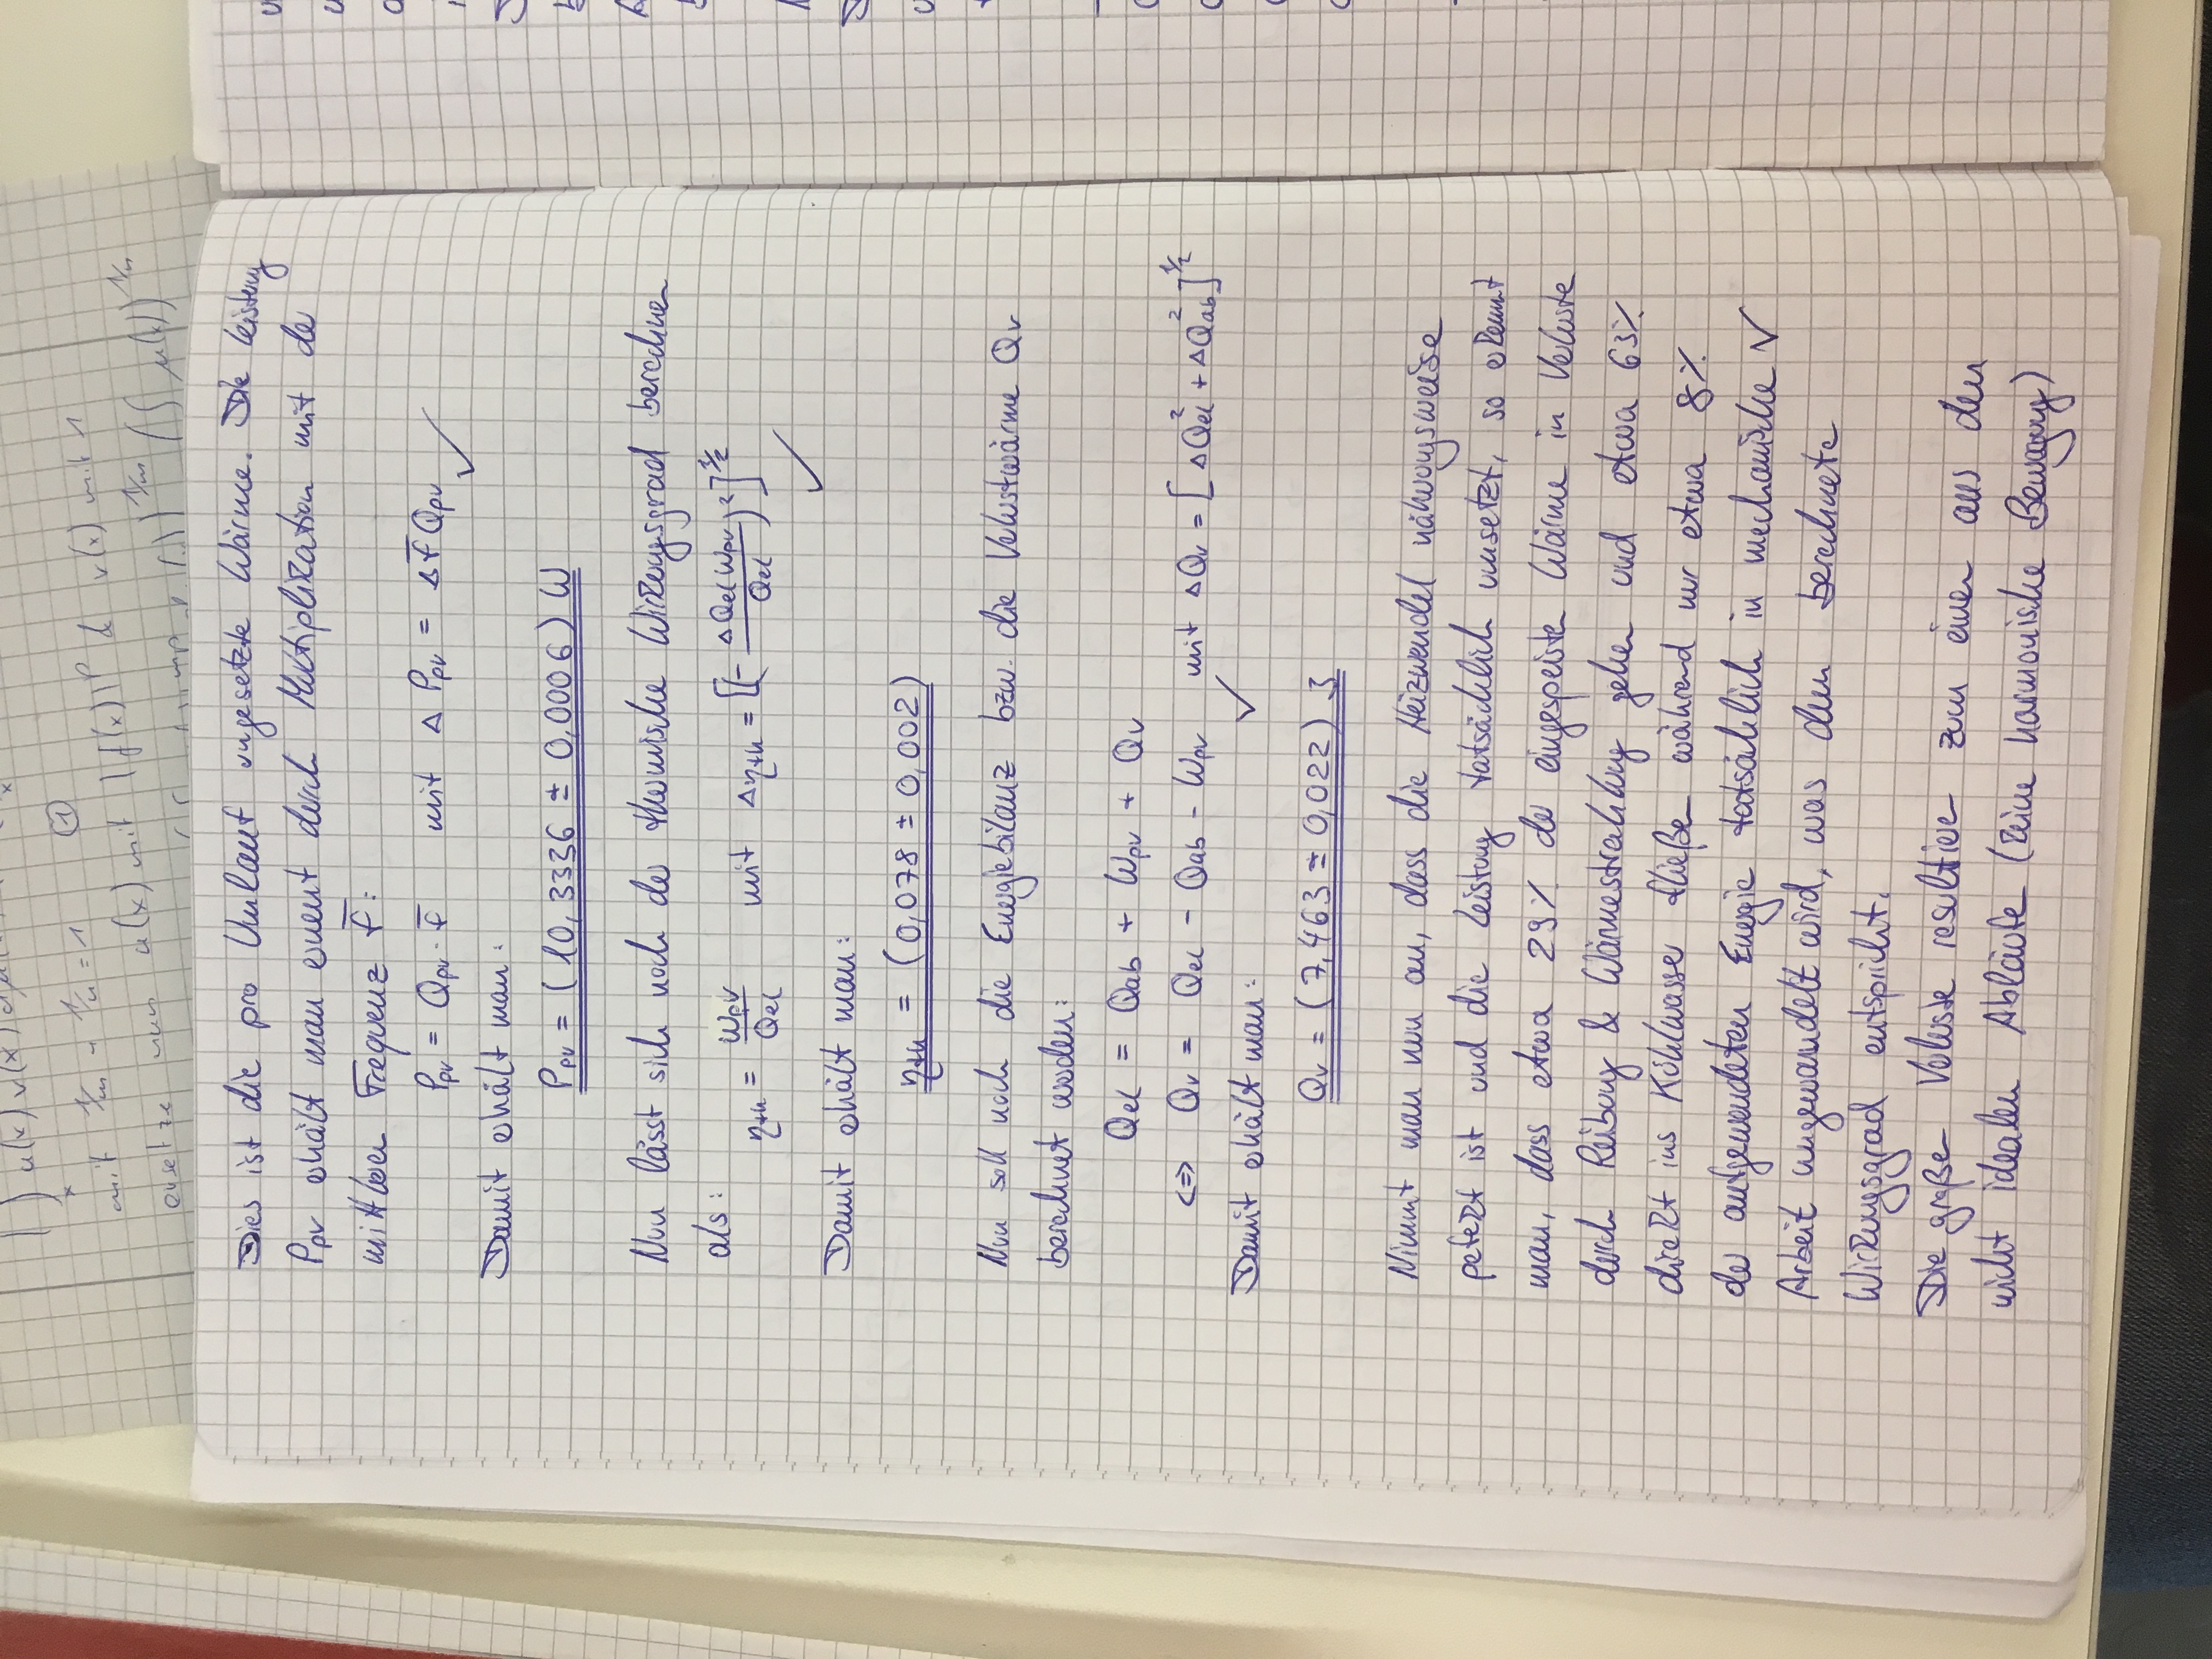 u(x) v(x)
mit 1/m + 1/n = 1 ①
ersetze nun u(x) mit |f(x)|^p & v(x) mit 1
Dies ist die pro Umlauf umgesetzte Wärme. Die Leistung
P_pv erhält man erneut durch Multiplikation mit der
mittleren Frequenz f̅:
P_pv = Q_pv · f̅ mit Δ P_pv = Δf̅ Q_pv ✓
Damit erhält man:
P_pv = (10,3336 ± 0,0006) W
Nun lässt sich noch der thermische Wirkungsgrad berechnen
als: η_th = W_pv / Q_el mit Δη_th = [(- ΔQ_el W_pv / Q_el)²]^1/2
✓
Damit erhält man:
η_th = (0,078 ± 0,002)
Nun soll noch die Energiebilanz bzw. die Verlustwärme Q_v
berechnet werden:
Q_el = Q_ab + W_pv + Q_v
<=> Q_v = Q_el - Q_ab - W_pv mit ΔQ_v = [ΔQ_el² + ΔQ_ab²]^1/2
Damit erhält man: ✓
Q_v = (7,463 ± 0,022) J
Nimmt man nun an, dass die Heizwendel näherungsweise
pefekt ist und die Leistung tatsächlich umsetzt, so erkennt
man, dass etwa 29% der eingespeisten Wärme in Verluste
durch Reibung & Wärmestrahlung gehen und etwa 63%
direkt ins Kühlwasser fließen während nur etwa 8%
der aufgewendeten Energie tatsächlich in mechanische ✓
Arbeit umgewandelt wird, was dem berechnete
Wirkungsgrad entspricht.
Die großen Verluste resultieren zum einen aus den
nicht idealen Abläufe (keine harmonische Bewegung)